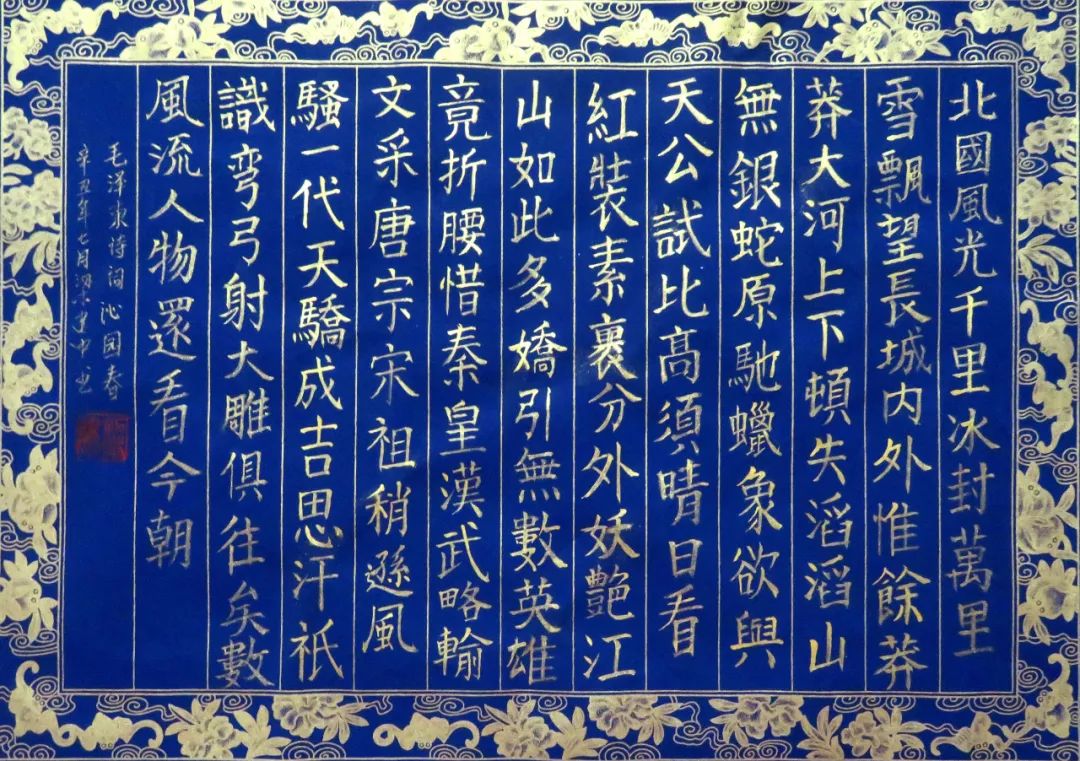 北國風光千里冰封萬里
雪飄望長城内外惟餘莽
莽大河上下頓失滔滔山
無銀蛇原馳蠟象欲與
天公試比高須晴日看
紅裝素裹分外妖艷江
山如此多嬌引無數英雄
竟折腰惜秦皇漢武略輸
文采唐宗宋祖稍遜風
騷一代天驕成吉思汗祇
識弯弓射大雕俱往矣數
風流人物還看今朝
毛泽東诗词沁园春
辛丑年七月梁建中书